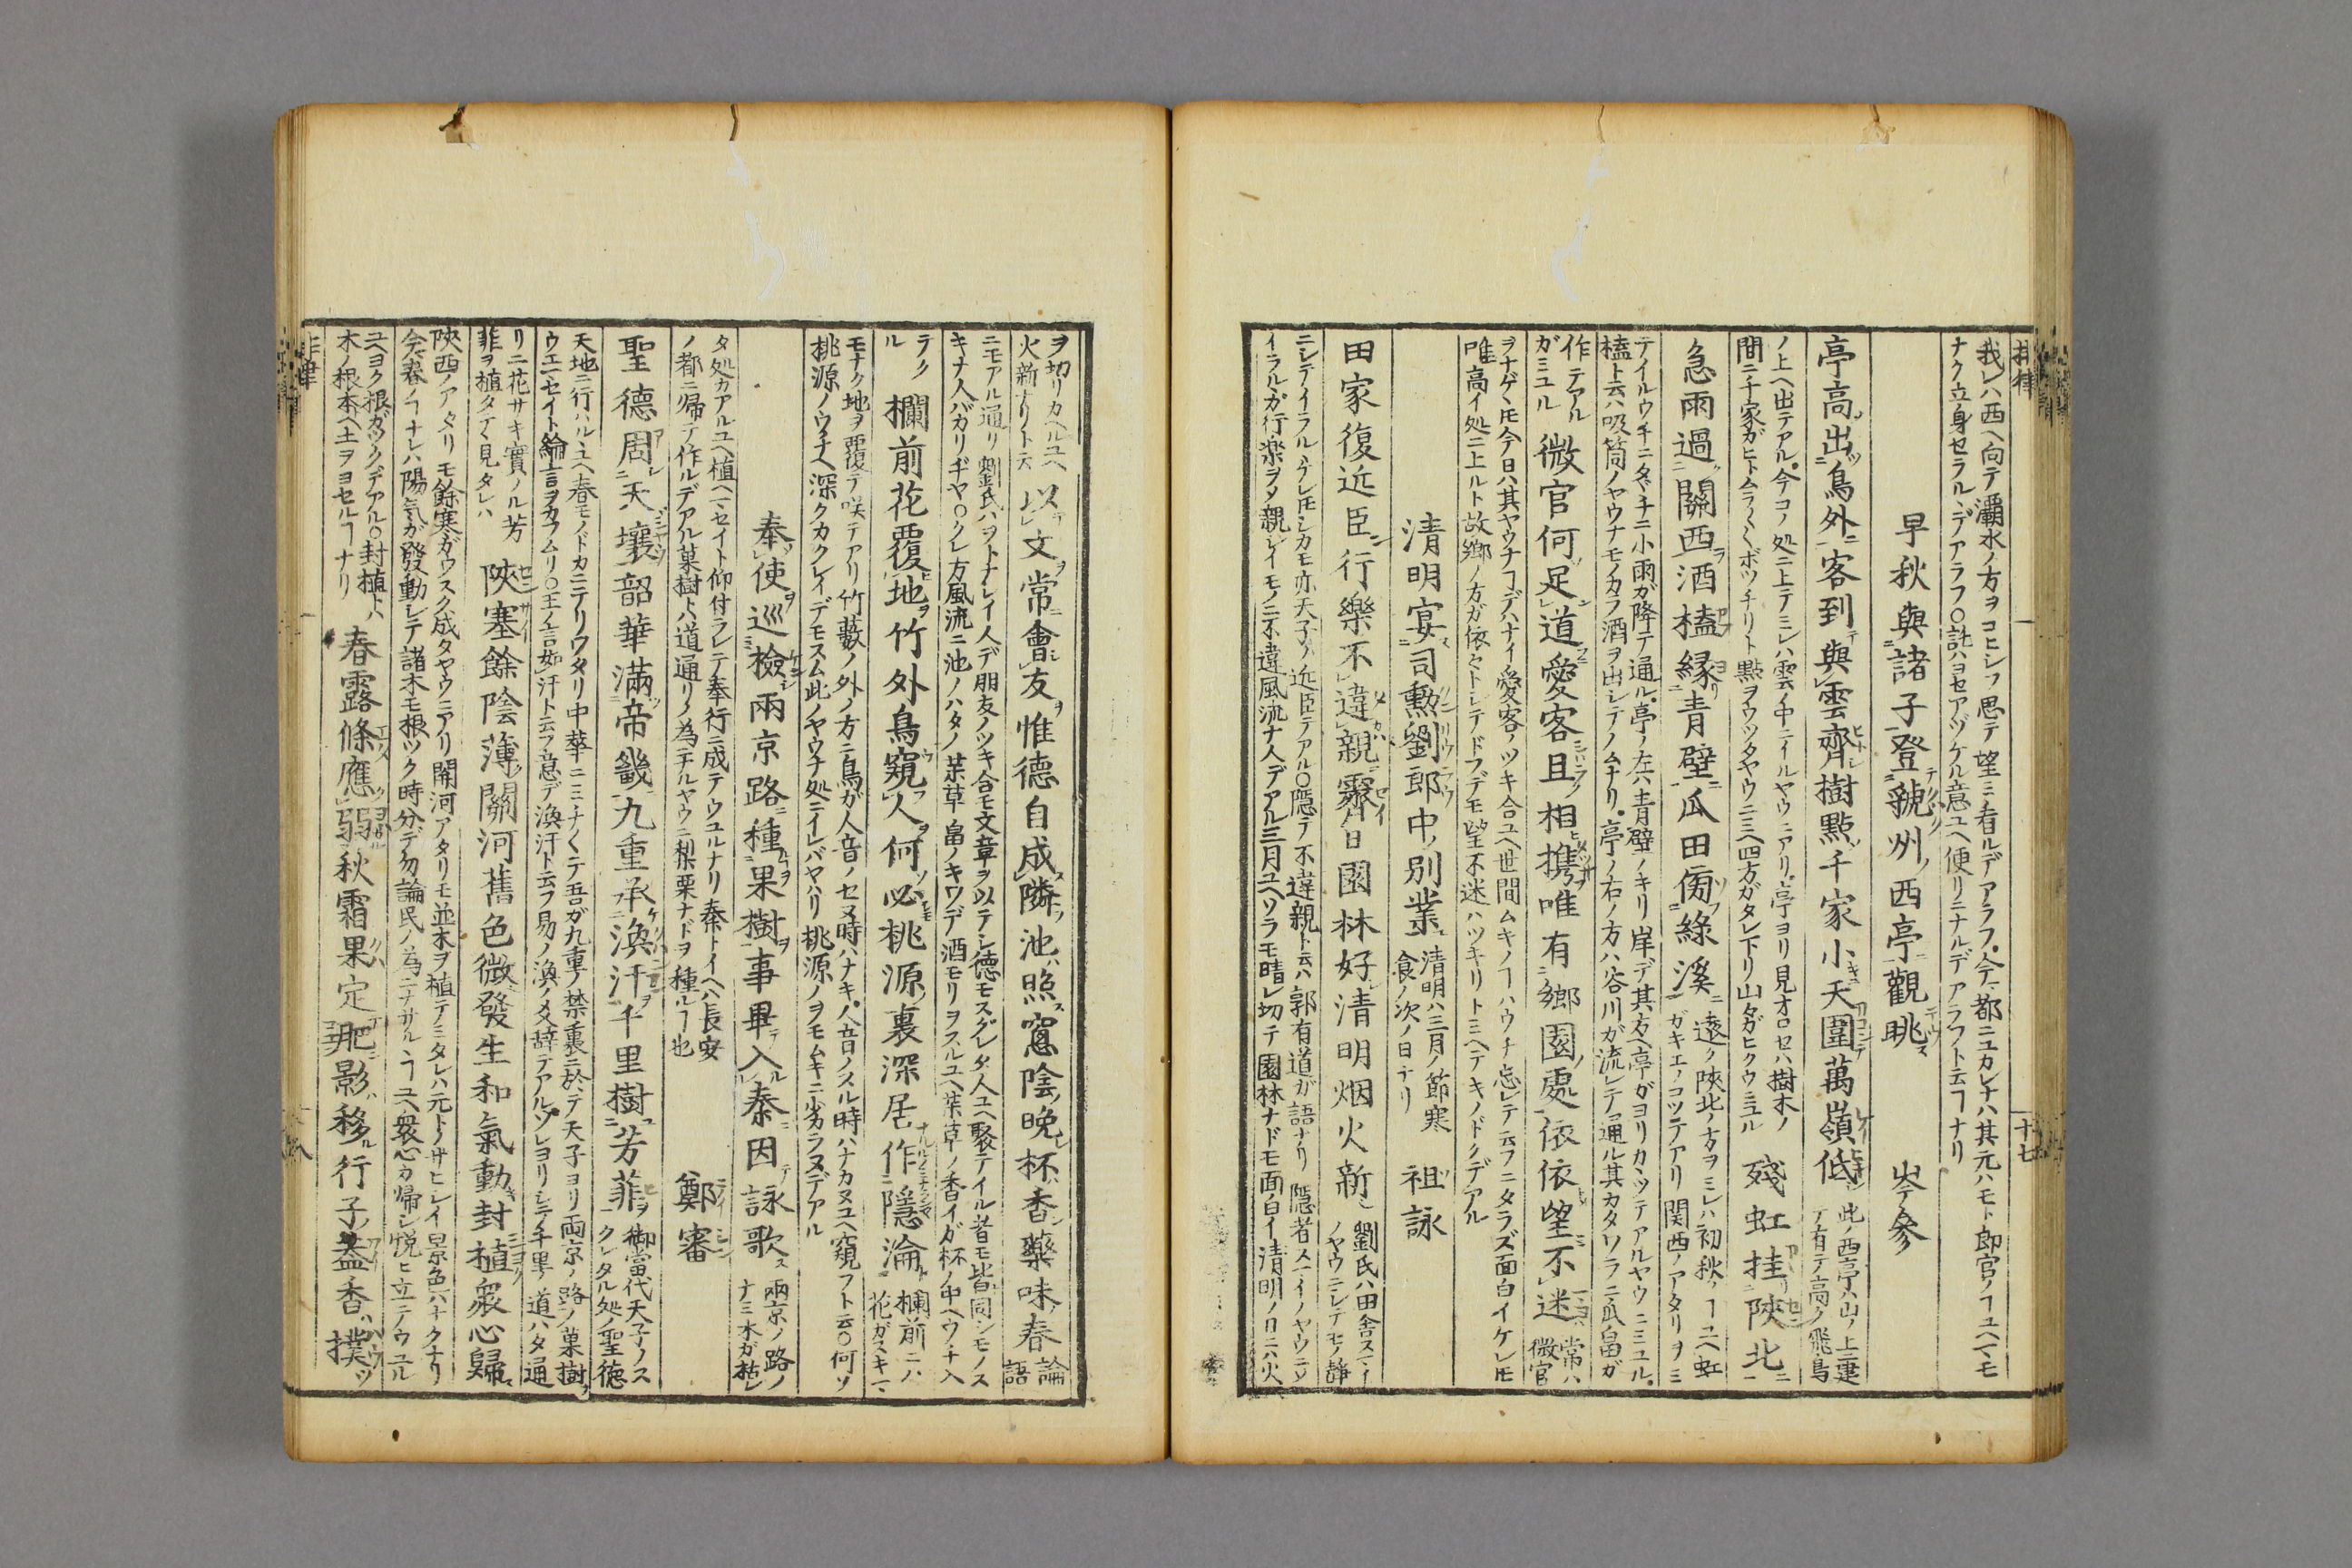 我レハ西ヘ向テ灞水ノ方ヲコヒシフ思テ望ミ看ルデアラフ今都ニユカレナハ其元ハモト郎官ノヿユヘマモ
ナク立身セラルヽデアラフ○託ハヨセアヅケル意ユヘ便リニナルデアラフト云ヿナリ
早秋與諸子登虢州西亭觀眺 岑參
亭高出鳥外客到與雲齊樹點千家小天圍萬嶺低 此ノ西亭ハ山ノ上ニ建
テ有テ高ク飛鳥
ノ上ヘ出テアル今コノ処ニ上テミレハ雲ノ中ニイルヤウニアリ亭ヨリ見オロセハ樹木ノ
間ニ千家ガヒトムラ〳〵ボツチリト點ヲウツタヤウニミヘ四方ガタレ下リ山々ガヒクウミユル 殘虹挂陝北
急雨過關西酒榼緣青壁瓜田傍綠溪 遠ク陝北ノ方ヲミレハ初秋ノヿユヘ虹
ガキエノコツテアリ関西ノアタリヲミ
テイルウチニタチマチニ小雨ガ降テ通ル亭ノ左ハ青壁ノキリ岸デ其方ヘ亭ガヨリカヽツテアルヤウニミユル
榼ト云ハ吸筒ノヤウナモノカラ酒ヲ出シテノムナリ亭ノ右ノ方ハ谷川ガ流レテ通ル其カタワラニ瓜畠ガ
作テアル
ガミユル 微官何足道愛客且相携唯有鄉園處依依望不迷 常ハ
微官
ヲナゲヽ𪜈今日ハ其ヤウナヿデハナイ愛客ノツキ合ユヘ世間ムキノヿハウチ忘レテ云フニタラズ面白イケレ𪜈
唯高イ処ニ上ルト故鄉ノ方ガ依々トシテドフデモ望不迷ハツキリトミヘテキノドクデアル
清明宴司勲劉郎中別業 清明ハ三月ノ節寒
食ノ次ノ日ナリ 祖詠
田家復近臣行樂不違親霽日園林好清明烟火新 劉氏ハ田舎ズマイ
ノヤウニシテモノ静
ニシテイラルヽケレ𪜈シカモ亦天子ノ近臣テアル○隱テ不違親ト云ハ郭有道ガ語ナリ隱者ズマイノヤウニシ
イラルヽガ行楽ヲメ親シイモノニ不違風流ナ人デアル三月ユヘソラモ晴レ切テ園林ナドモ面白イ清明ノ日ニハ火
ヲ切リカヘルユヘ
火新ナリト云 以文常會友惟德自成隣池照窓陰晩杯香藥味春 論
語
ニモアル通リ劉氏ハヲトナシイ人デ朋友ノツキ合モ文章ヲ以テシ徳モスグレタ人ユヘ聚テイル者モ皆同シモノス
キナ人バカリヂヤ○クレ方風流ニ池ノハタノ薬草畠ノキワデ酒モリヲスルユヘ薬草ノ香イガ杯ノ中ヘウチ入
テク
ル 欄前花覆地竹外鳥窺人何必桃源裏深居作隱淪 欄前ニハ
花ガスキマ
モナク地ヲ覆テ咲テアリ竹藪ノ外ノ方ニ鳥ガ人音ノセヌ時ハナキ人音ノスル時ハナカヌユヘ窺フト云○何ソ
桃源ノウチヘ深クカクレイデモスム此ノヤウナ処ニイレバヤハリ桃源ノヲモムキニ劣ラヌデアル
奉使巡檢兩京路種果樹事畢入秦因詠歌 兩京ノ路ノ
ナミ木ガ枯レ
タ処カアルユヘ植ヘマセイト仰付ラレテ奉行ニ成テウユルナリ秦トイヘハ長安
ノ都ニ帰テ作ルデアル菓樹トハ道通リノ為ニナルヤウニ梨栗ナドヲ種ルヿ也 鄭審
聖德周天壤韶華滿帝畿九重承渙汗千里樹芳菲 御當代天子ノス
グレタル処ノ聖德
天地ニ行ハルユヘ春モノドカニテリワタリ中華ニミナ〳〵テ吾ガ九重ノ禁裏ニ於テ天子ヨリ兩京ノ路ノ菓樹ヲ
ウエニセイト綸言ヲカフムリ○王ノ言如汗ト云フ意デ渙汗ト云フ易ノ渙ノ爻辞テアルソレヨリシテ千里ノ道ハタ通
リニ花サキ實ノル芳
菲ヲ植タテヽ見タレハ 陝塞餘陰薄關河舊色微發生和氣動封植衆心歸
陝西ノアタリモ餘寒ガウスク成タヤウニアリ関河アタリモ並木ヲ植テミタレハ元トノサヒシイ景色ハナクナリ
今春ノヿナレハ陽気ガ發動シテ諸木モ根ツク時分デ勿論民ノ為ニナサルヽヿユヘ衆心カ帰シ悦ヒ立テウユル
ユヘヨク根ガツクデアル○封植トハ
木ノ根本ヘ土ヲヨセルヿナリ 春露條應弱秋霜果定肥影移行子蓋香撲
十七